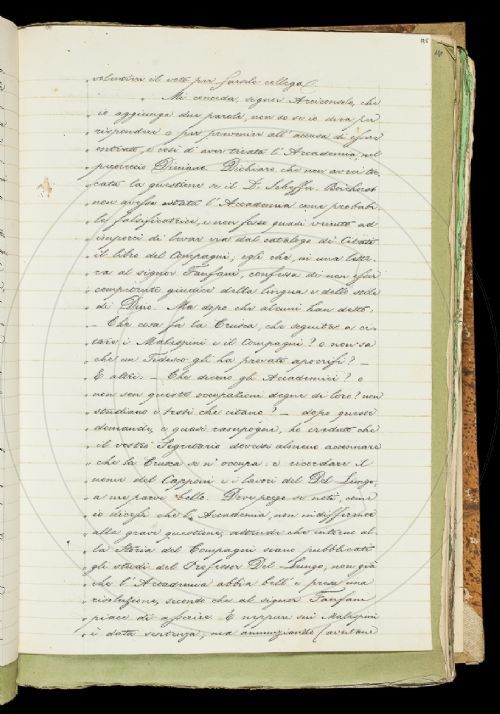 il voto per farselo collega.
„ Mi conceda, signor Arciconsolo, che
„ io aggiunga due parole, non so se io deva per
„ rispondere o per prevenire all' accusa di esser
„ entrato, e così di aver tirata l' Accademia, nel
„ Diniano. Dichiaro che non avrei toc-
„ cata la questione se il D. Scheffer-Boichorst
„ non avesse l' Accademia come probabi-
„ le falsificatrice, e non fosse quasi venuto ad
„ imporci di levar via dal catalogo dei Citati
„ il libro del Compagni; egli che, in una lette-
„ ra al signor Fanfani, confessa di non esser
„ competente giudice della lingua e dello stile
„ di Dino. Ma dopo che alcuni han detto:
„ — Che cosa fa la Crusca, che seguita a ci-
„ tare i Malispini e il Compagni? o non sa
„ che un Tedesco gli ha provati apocrifi? —
„ E altri: — Che dicono gli Accademici? o
„ non son queste occupazioni degne di loro? non
„ studiano i testi che citano? — dopo queste
„ domande, e quasi rampogne, ho creduto che
„ il vostro Segretario dovesse almeno accennare
„ che la Crusca se n' occupa: e ricordare il
„ nome del Capponi e i lavori del Del Lungo,
„ a me parve bello. Dove però si noti, come
„ io dicessi che l' Accademia, non indifferente
„ alla grave questione, attende che intorno al-
„ la Storia del Compagni siano pubblicati
„ gli studi del Professor Del Lungo; non già
„ che l' Accademia abbia bell' e presa una
„ risoluzione, secondo che al signor Fanfani
„ piace di asserire. E neppure sui Malispini
„ è data sentenza; ma annunziando